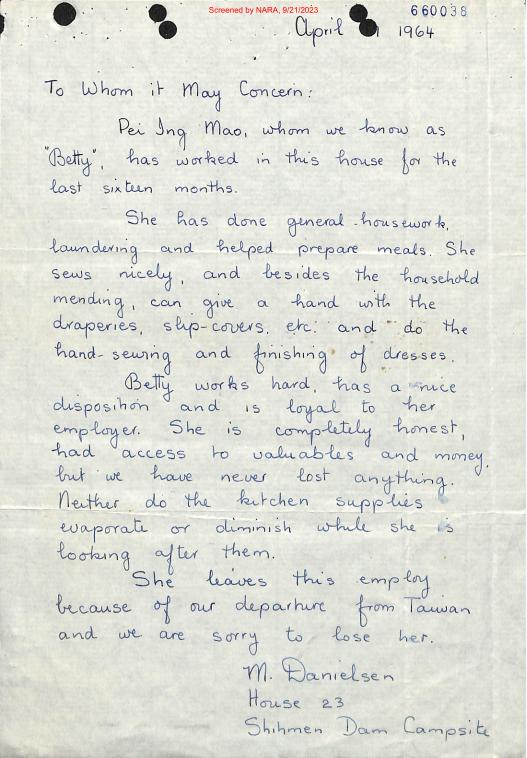 Screened by NARA, 9/21/2023
660038
April 1964
To Whom it May Concern:
Pei Ing Mao, whom we know as
"Betty", has worked in this house for the
last sixteen months.
She has done general housework,
laundering and helped prepare meals. She
sews nicely, and besides the household
mending, can give a hand with the
draperies, slip-covers, etc. and do the
hand-sewing and finishing of dresses.
Betty works hard, has a nice
disposition and is loyal to her
employer. She is completely honest,
had access to valuables and money,
but we have never lost anything.
Neither do the kitchen supplies
evaporate or diminish while she is
looking after them.
She leaves this employ
because of our departure from Taiwan
and we are sorry to lose her.
M. Danielsen
House 23
Shihmen Dam Campsite